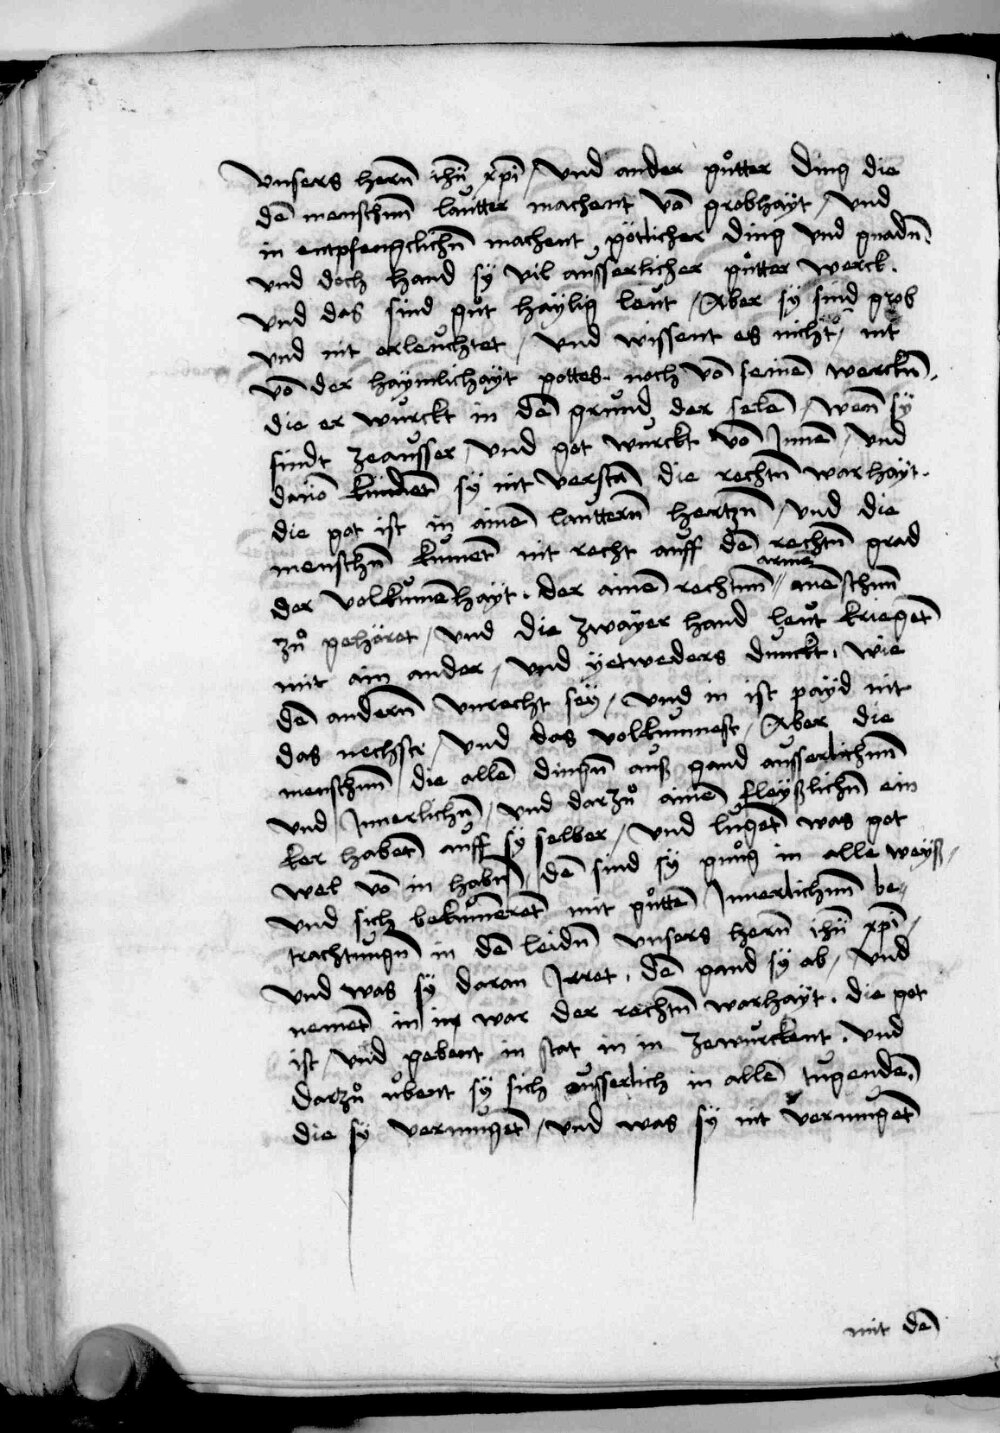 vnsers herñ ihũ xp̄i / vnd ander gůtter ding die
dē menschen̄ lautter machent vō grobhayt / vnd
in entpfenglichn̄ machent götlicher ding vnd gnadn̄.
vnd doch hand sÿ vil ausserlicher gůtter werck.
vnd das sind gůt haÿlig leut / Aber sÿ sind grob
vnd nit erleuchtet / vnd wissent es nicht / nit
vō der haÿmlichaÿt gottes noch vō seinē werckn̄.
die er wurckt in dē grund der selē / wen̄ sÿ
sindt zeausser / vnd got wurckt vō Innē / vnd
dauō kundēt sÿ nit verstā die rechtn̄ warhaÿt.
die got ist in ainē lauttern̄ hertzn̄ / vnd die
menschn̄ kumēt nit recht auff dē rechtn̄ grad
der volkumēhaÿt. der ainē rechten̄ armē menschen̄
zů gehöret / vnd die zwaÿer hand leut kriegēt
mit ain ander / vnd ÿetweders dunckt. wie
dē andern̄ vnrecht seÿ / vnd in ist payd nit
das nechste / vnd das volkumnest / Aber die
menschen̄ die allē dingn̄ auß gand ausserlichen̄
vnd Innerlichn̄ / vnd darzů ainē fleÿßlichn̄ ein
ker habēt auff sÿ selber / vnd lugēt was got
wel vō in habn̄ / dē sind sÿ gnůg in alle weÿß /
vnd sich bekumerēt mit gůttē Innerlichen̄ be /
trachtungn̄ in dē leidn̄ vnsers herñ ihũ xp̄i /
vnd was sÿ daran Irret. dē gand sÿ ab / vnd
nemēt in in war der rechtn̄ warhaÿt. die got
ist / vnd gebent in stat in in zewurckent. vnd
darzů ůbent sÿ sich eusserlich in allē tugendē.
die sÿ vermugēt / vnd was sÿ nit vermugēt
mit dē